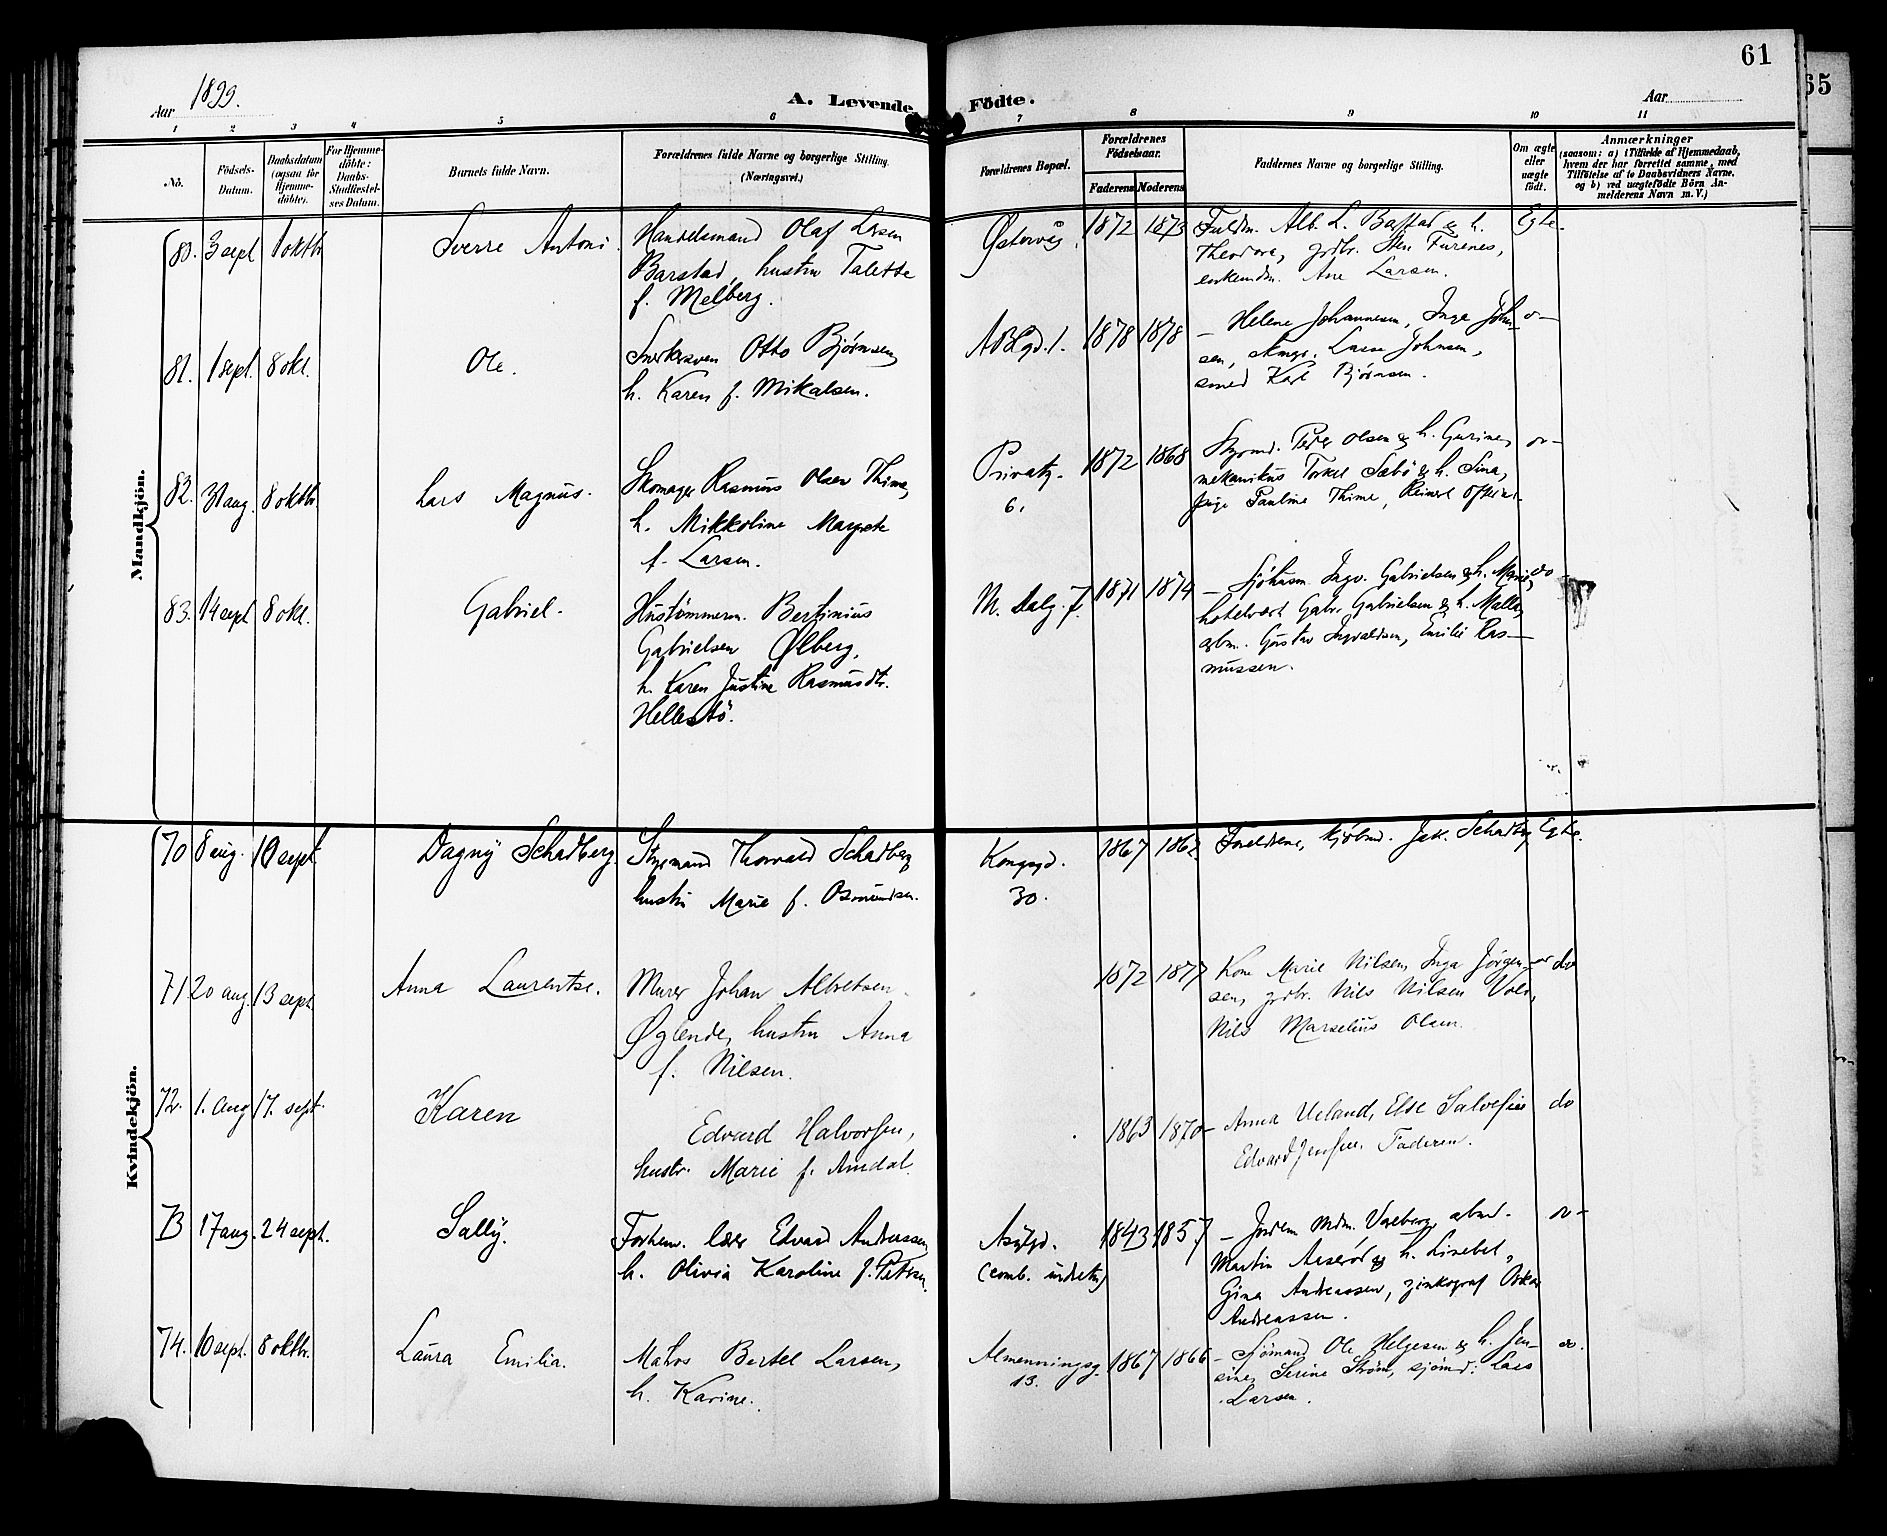 61
65
Aar 1899.
A. Levende Födte.
Aar
1 2 3 4 5 6 7 8 9 10 11
No.
Födsels-
Datum.
Daabsdatum
(ogsaa for
Hjemme-
döbte).
For Hjemme-
döbte:
Daabs-
Stadfæstel-
ses Datum.
Barnets fulde Navn.
Forældrenes fulde Navne og borgerlige Stilling.
(Næringsvei.)
Forældrenes Bopæl.
Forældrenes
Födselsaar.
Faderens Moderens
Faddernes Navne og borgerlige Stilling.
Om ægte
eller
uægte
födt.
Anmærkninger
(saasom: a) i Tilfælde af Hjemmedaab,
hvem der har forrettet samme, med
Tilföielse af to Daabsvidners Navne,
og b) ved uægtefödte Börn An-
melderens Navn m. V.)
Mandkjön.
80. 3 sept 1 oktb Sverre Antoni.
Handelsmand Olaf Larsen
Barstad, hustru Talette
f. Melberg.
Østervåg. 1872 1873
Fuldm. Alb. L. Barstad & h.
Theodora, grdbr. Sten Furenes,
enkemdm. Ane Larsen.
Egte.
81. 1 sept. 8 okt. Ole.
Otto Bjørnsen,
h. Karen f. Mikalsen.
1. 1878 1878
– Helene Johannesen, Inga John-
sen, Lasse Johnsen,
smed Karl Bjørnsen.
82. 31 aug. 8 oktb. Lars Magnus.
Skomager Rasmus Olsen Thime,
h. Mikkoline Margrete
f. Larsen.
Privatg.
6.
1872 1868
Styrmd. Peder Olsen & h. Gurine,
mekanikus Torkel Sæbö & h. Sina,
pige Pauline Thime, Reinert
83. 14 sept 8 okt. Gabriel.
Hustömmerm. Bertinius
Gabrielsen Ølberg,
h. Karen Justine Rasmusdtr.
Hellestö.
N. Dalg. 7. 1871 1874
– Ingv. Gabrielsen & h. Marie, do
hotelvært Gabr. Gabrielsen & h. Malla,
arbm. Gustav Ingvaldsen, Emilie Ras-
mussen.
Kvindekjön.
70 8 aug. 10 sept Dagny Schadberg.
Styrmand Thorvald Schadberg
hustru Marie f. Osmundsen.
Kongsgd.
30.
1867 1862
Foreldrene, kjøbmd. Jak. Schadberg Egte.
71 20 aug. 13 sept. Anna Laurentse.
Murer Johan Albretsen
Øglende, hustru Anna
f. Nilsen.
1872 1877
Kone Marie Nilsen, Inga Jörgen- do
sen, grdbr. Nils Nilsen Vold,
Nils Marselius Olsen.
72. 1. aug 17. sept. Karen
Edvard Halvorsen,
hustr. Marie f. Amdal.
1863 1870
– Anna Ueland, Else Salvesen do
Edvard Jensen. Faderen.
73 17 aug. 24 sept. Sally.
Forhenv. lærer Edvard Andreassen
h. Olivia Karoline f. Petersen.
Asylgd.
(comb. indretn)
1843 1857
– Jordem. Mdm. Vareberg, arbmd.
Martin Aaserød & h. Lisebet,
Gina Andreassen, zinkograf Oskar
Andreassen.
74. 10 sept. 8 oktb. Laura Emilia.
Matros Bertel Larsen,
h. Karine.
Almenningsg.
13.
1867 1866
– Sjömand Ole Helgesen & h. Jen- do.
sine, Serine Ström, sjömd. Lars
Larsen.